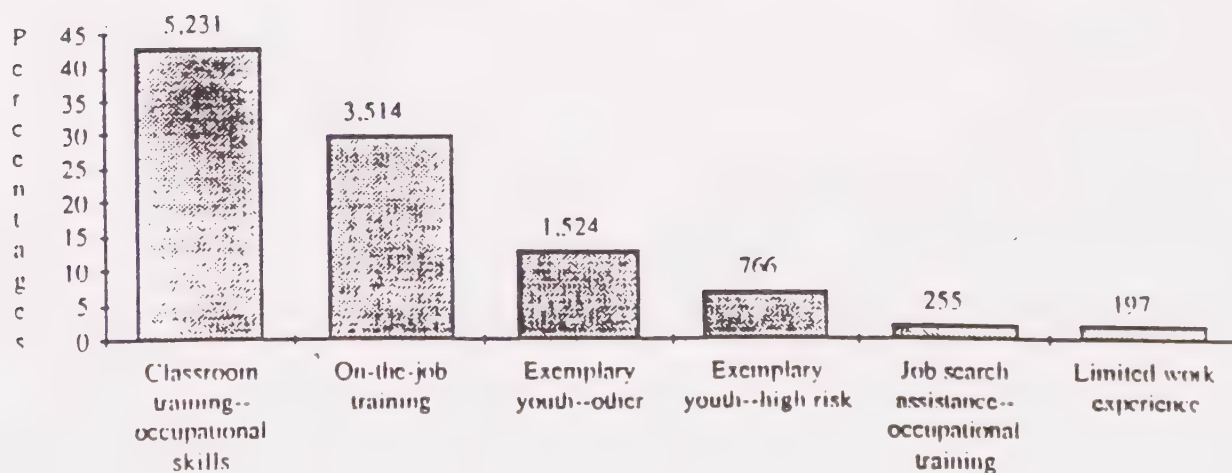 Percentages
45
40
35
30
25
20
15
10
5
0
5,231
3,514
1,524
766
255
197
Classroom
training--
occupational
skills
On-the-job
training
Exemplary
youth--other
Exemplary
youth--high risk
Job search
assistance--
occupational
training
Limited work
experience